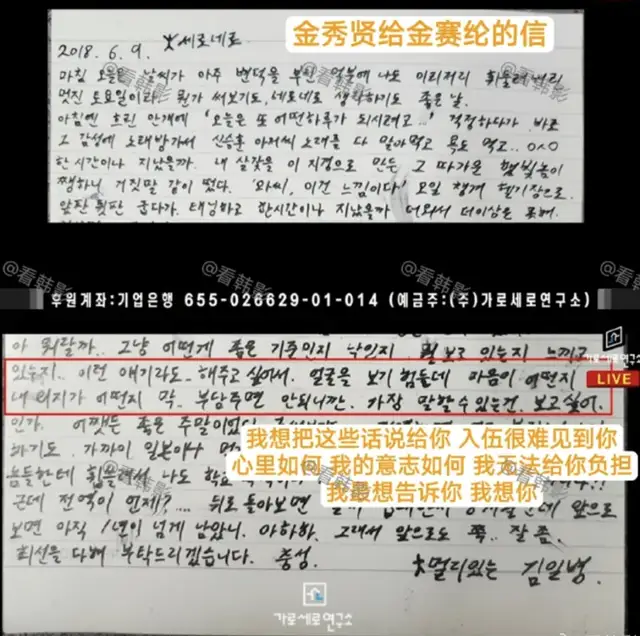 金秀贤给金赛纶的信
2018. 6. 9. 세로네로
마침 오늘은 날씨가 아주 변덕을 부린 덕분에 나도 이리저리 휘둘려버린
멋진 토요일이라 뭔가 써보기도, 네로네로 생각하기도 좋은 날.
아침엔 흐린 안개에 '오늘은 또 어떤하루가 되시려고..' 걱정하다가 바로
그 감성에 노래방가서 신승훈 아저씨 노래를 다 말아먹고 욕도 먹고..
한 시간이나 지났을까. 내 살갗을 이 지경으로 만든 그 따가운 햇빛놈이
쨍하니 거짓말 같이 떴다. '와씨, 이건 느낌이다' 오일 챙겨 헬기장으로.
앞판 뒷판 굽다가. 태닝하고 한시간이나 지났을까 더워서 더이상은 못해.
@看韩影
@看韩影
@看韩影
후원계좌:기업은행 655-026629-01-014 (예금주:(주)가로세로연구소)
가로세로연구소
LIVE
아 뭐랄까.. 그냥 어떤게 좋은 기준인지 낙인지 뭘 보고 있는지 느끼고
있는지.. 이런 얘기라도.. 해주고 싶어서. 얼굴을 보기 힘든데 마음이 어떤지
내 의지가 어떤지 막. 부담주면 안되니깐. 가장 말할수있는건. 보고싶어.
인가. 어쨌든 좋은 주말이었다
我想把这些话说给你 入伍很难见到你
心里如何 我的意志如何 我无法给你负担
我最想告诉你 我想你
하기도. 가까이 일본이나
놈들한테 휘둘려서 나도
근데 전역이 언제?.... 뒤로 돌아보면 앞으로
보면 아직 1년이 넘게 남았니. 아하하. 그래서 앞으로도 쭉.. 잘 좀.
최선을 다해 부탁드리겠습니다. 충성.
멀리있는 김일병.
가로세로연구소